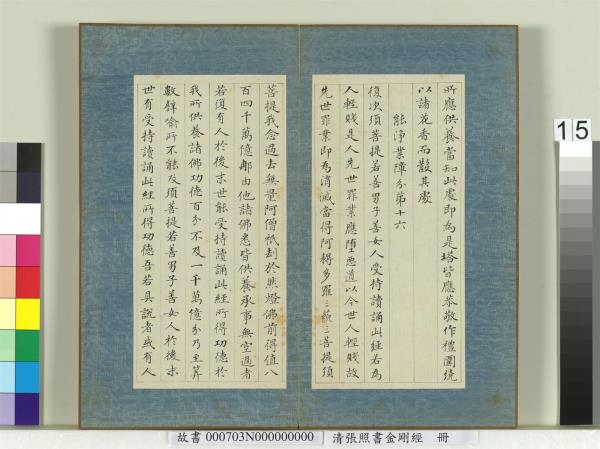 所應供養當知此處即為是塔皆應恭敬作禮圍繞
以諸花香而散其處
能淨業障分第十六
復次須菩提若善男子善女人受持讀誦此經若為
人輕賤是人先世罪業應墮惡道以今世人輕賤故
先世罪業即為消滅當得阿耨多羅三藐三菩提須
菩提我念過去無量阿僧祇劫於然燈佛前得值八
百四千萬億那由他諸佛悉皆供養承事無空過者
若復有人於後末世能受持讀誦此經所得功德於
我所供養諸佛功德百分不及一千萬億分乃至筭
數譬喻所不能及須菩提若善男子善女人於後末
世有受持讀誦此經所得功德吾若具說者或有人
15
故書 000703N000000000 清張照書金剛經 冊